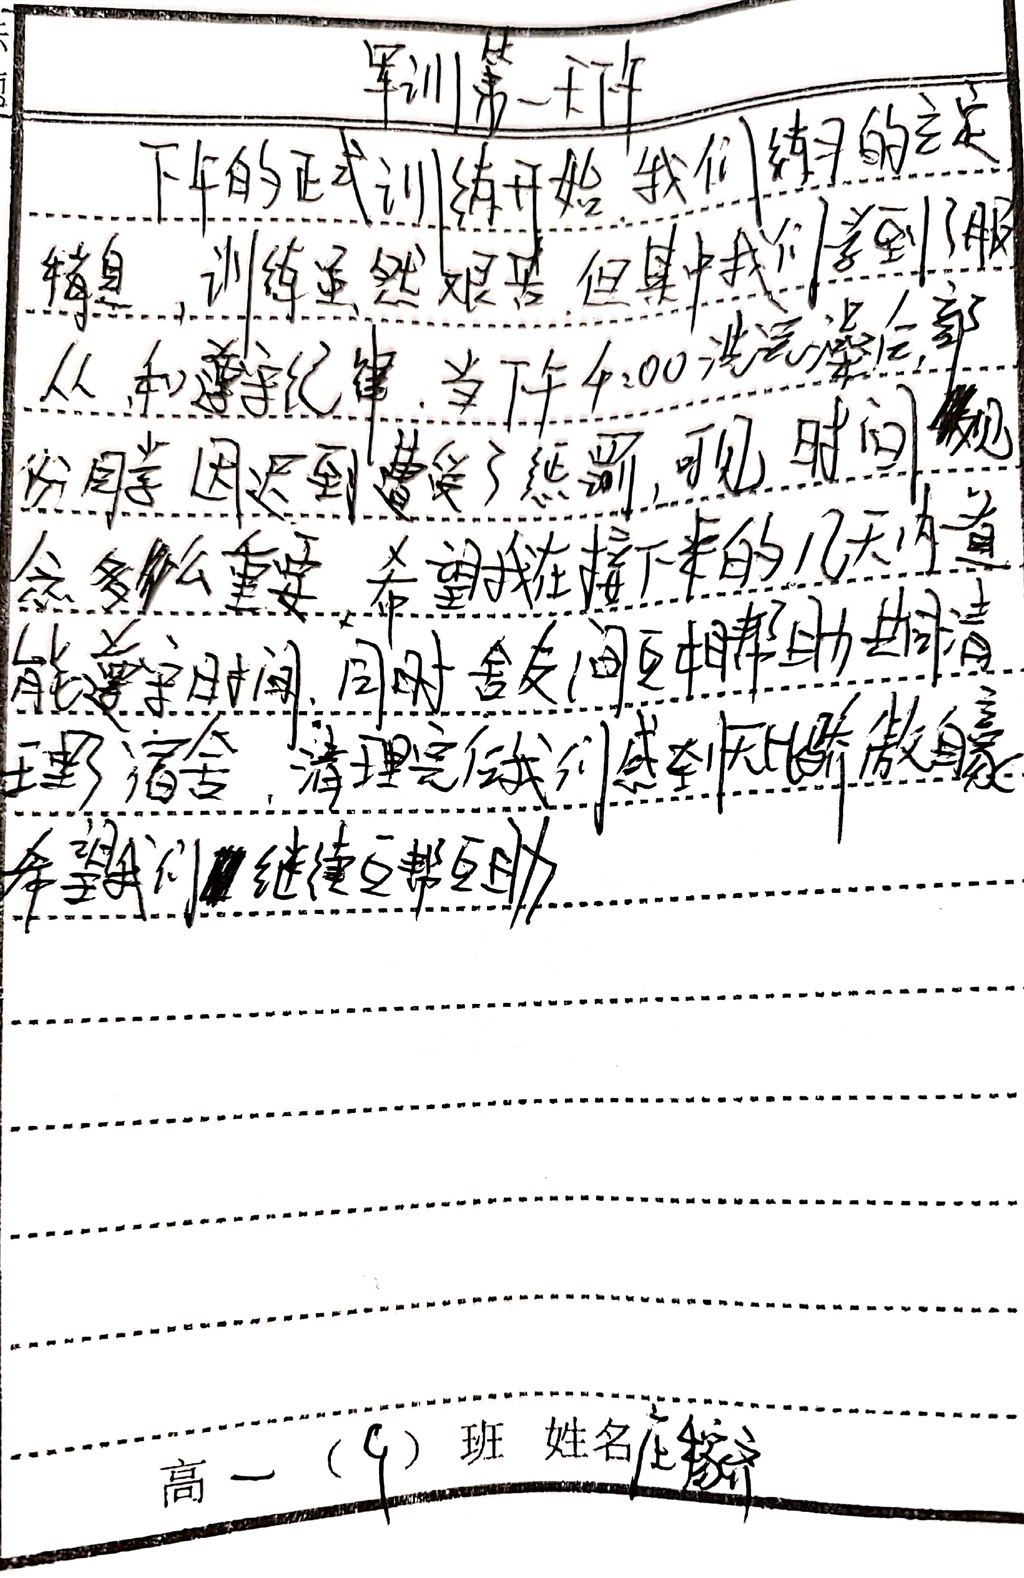 军训第一天下午
下午的正式训练开始,我们练习的立定
稍息,训练虽然艰苦,但其中我们学到了服
从和遵守纪律.当下午4:00洗完澡后,部
份同学因迟到遭受了惩罚,可见时间观
念多么重要.希望我在接下来的几天内
能遵守时间.同时舍友间互相帮助共同清
理了宿舍,清理完后我们感到无比骄傲自豪
希望我们继续互帮互助
高一(9)班 姓名庄